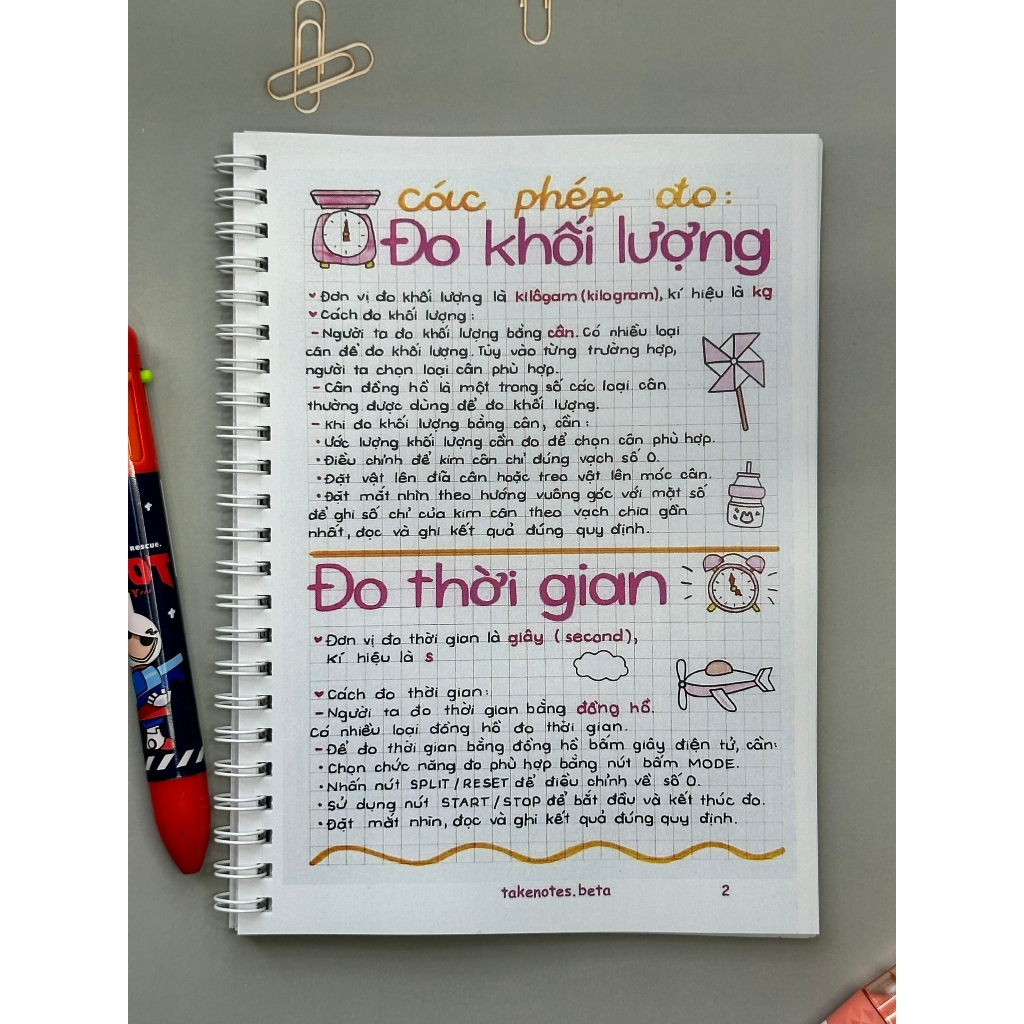 các phép đo:
Đo khối lượng
Đơn vị đo khối lượng là kilôgam (kilogram), kí hiệu là kg
Cách đo khối lượng:
- Người ta đo khối lượng bằng cân. Có nhiều loại
cân để đo khối lượng. Tùy vào từng trường hợp,
người ta chọn loại cân phù hợp.
- Cân đồng hồ là một trong số các loại cân
thường được dùng để đo khối lượng.
- Khi đo khối lượng bằng cân, cần:
• Ước lượng khối lượng cần đo để chọn cân phù hợp.
• Điều chỉnh để kim cân chỉ đúng vạch số 0.
• Đặt vật lên đĩa cân hoặc treo vật lên móc cân.
• Đặt mắt nhìn theo hướng vuông góc với mặt số
để ghi số chỉ của kim cân theo vạch chia gần
nhất, đọc và ghi kết quả đúng quy định.
Đo thời gian
Đơn vị đo thời gian là giây (second),
kí hiệu là s
Cách đo thời gian:
- Người ta đo thời gian bằng đồng hồ.
Có nhiều loại đồng hồ đo thời gian.
- Để đo thời gian bằng đồng hồ bấm giây điện tử, cần:
• Chọn chức năng đo phù hợp bằng nút bấm MODE.
• Nhấn nút SPLIT/RESET để điều chỉnh về số 0.
• Sử dụng nút START/STOP để bắt đầu và kết thúc đo.
• Đặt mắt nhìn, đọc và ghi kết quả đúng quy định.
takenotes.beta 2
RESCUE.